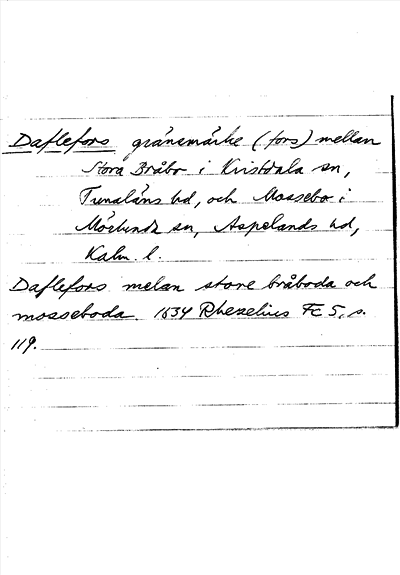 Daflefors gränsmärke (fors) mellan
Stora Bråbo i Kristdala sn,
Tunaläns hd, och Mossebo i
Mörlunda sn, Aspelands hd,
Kalm. l.
Daflefors melan store bråboda och
mosseboda. 1634 Rhezelius Fc 5, s.
119.